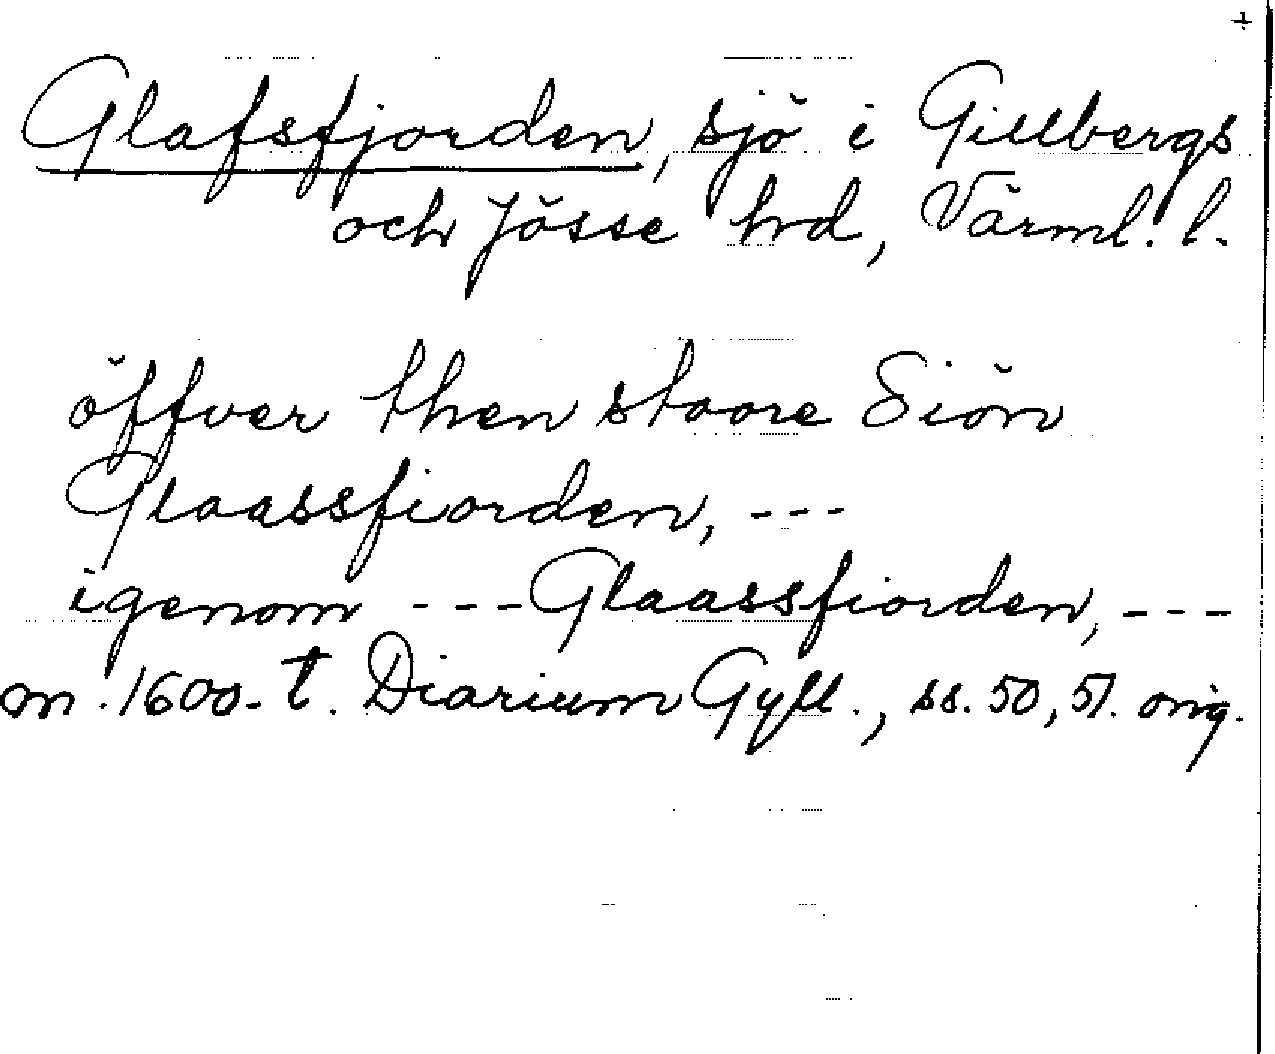 +
Glafsfjorden, sjö i Gillbergs
och Jösse hrd, Värml. l.
öffver then stoore Siön
Glaassfiorden, ---
igenom --- Glaassfiorden, ---
m. 1600-t. Diarium Gyll., ss. 50, 51. orig.